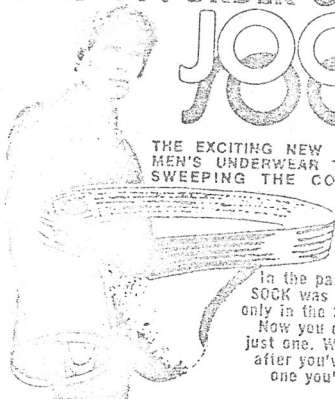 UNDER
JOC
THE EXCITING NEW
MEN'S UNDERWEAR T
SWEEPING THE CO
In the pa
SOCK was
only in the
Now you c
just one. W
after you'v
one you'